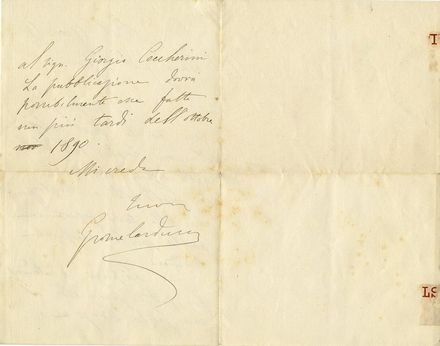 al sign. Giorgio Ceccherini
La pubblicazione dovrà
possibilmente esser fatta
non più tardi dell'ottobre
1890.
Mi creda
Suo
Giosue Carducci
I
LS